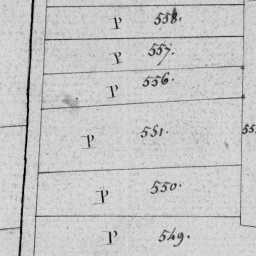 P 558.
P 557.
P 556.
P 551.
P 550.
P 549.